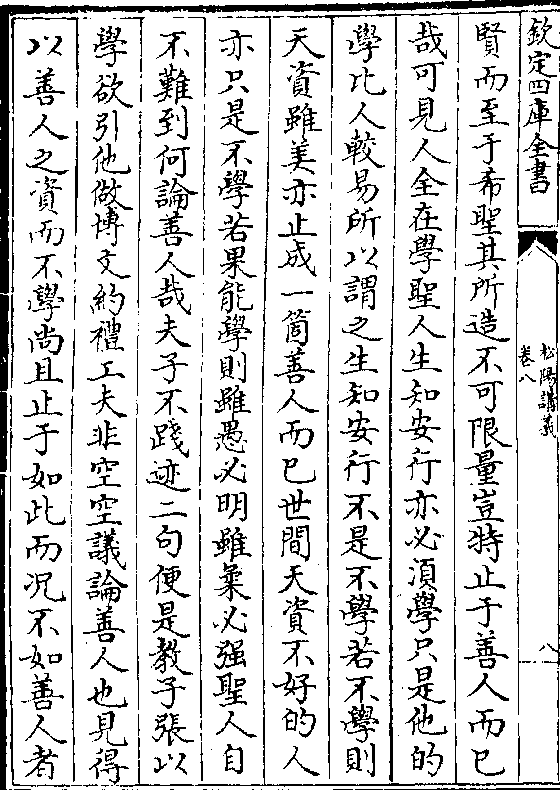 欽定四庫全書
松陽講義
卷八
八
賢而至于希聖其所造不可限量豈特止于善人而已
哉可見人全在學聖人生知安行亦必須學只是他的
學比人較易所以謂之生知安行不是不學若不學則
天資雖美亦止成一箇善人而已世間天資不好的人
亦只是不學若果能學則雖愚必明雖柔必强聖人自
不難到何論善人哉夫子不踐迹二句便是教子張以
學欲引他做博文約禮工夫非空空議論善人也見得
以善人之資而不學尚且止于如此而况不如善人者